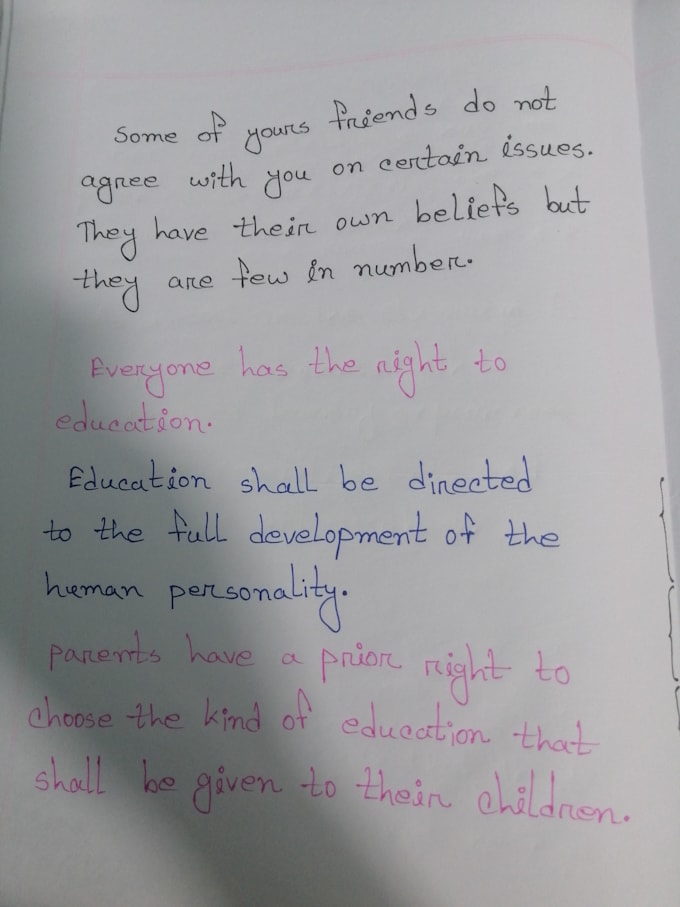 Some of yours friends do not
agree with you on certain issues.
They have their own beliefs but
they are few in number.
Everyone has the right to
education.
Education shall be directed
to the full development of the
human personality.
parents have a prior right to
choose the kind of education that
shall be given to their children.